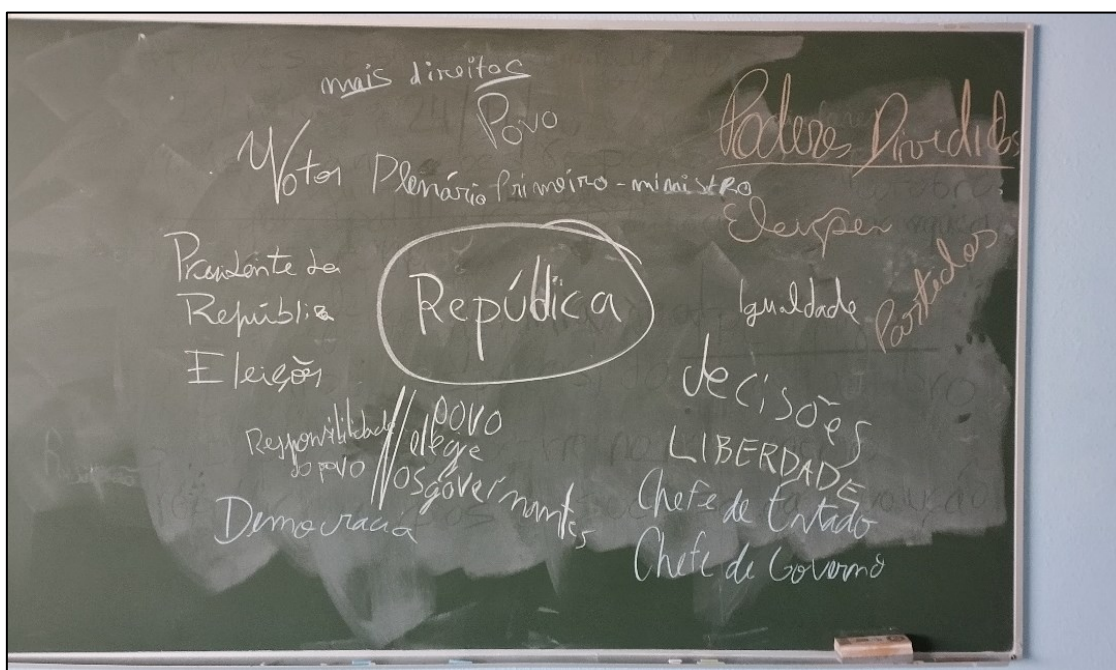 mais direitos
Povo
Poderes Divididos
Votos
Plenário
Primeiro-ministro
Eleições
Partidos
Presidente da
República
Eleições
Repúdica
Igualdade
decisões
Responsilidade
do povo
povo
elege
os governantes
LIBERDADE
Democracia
Chefe de Estado
Chefe de Governo